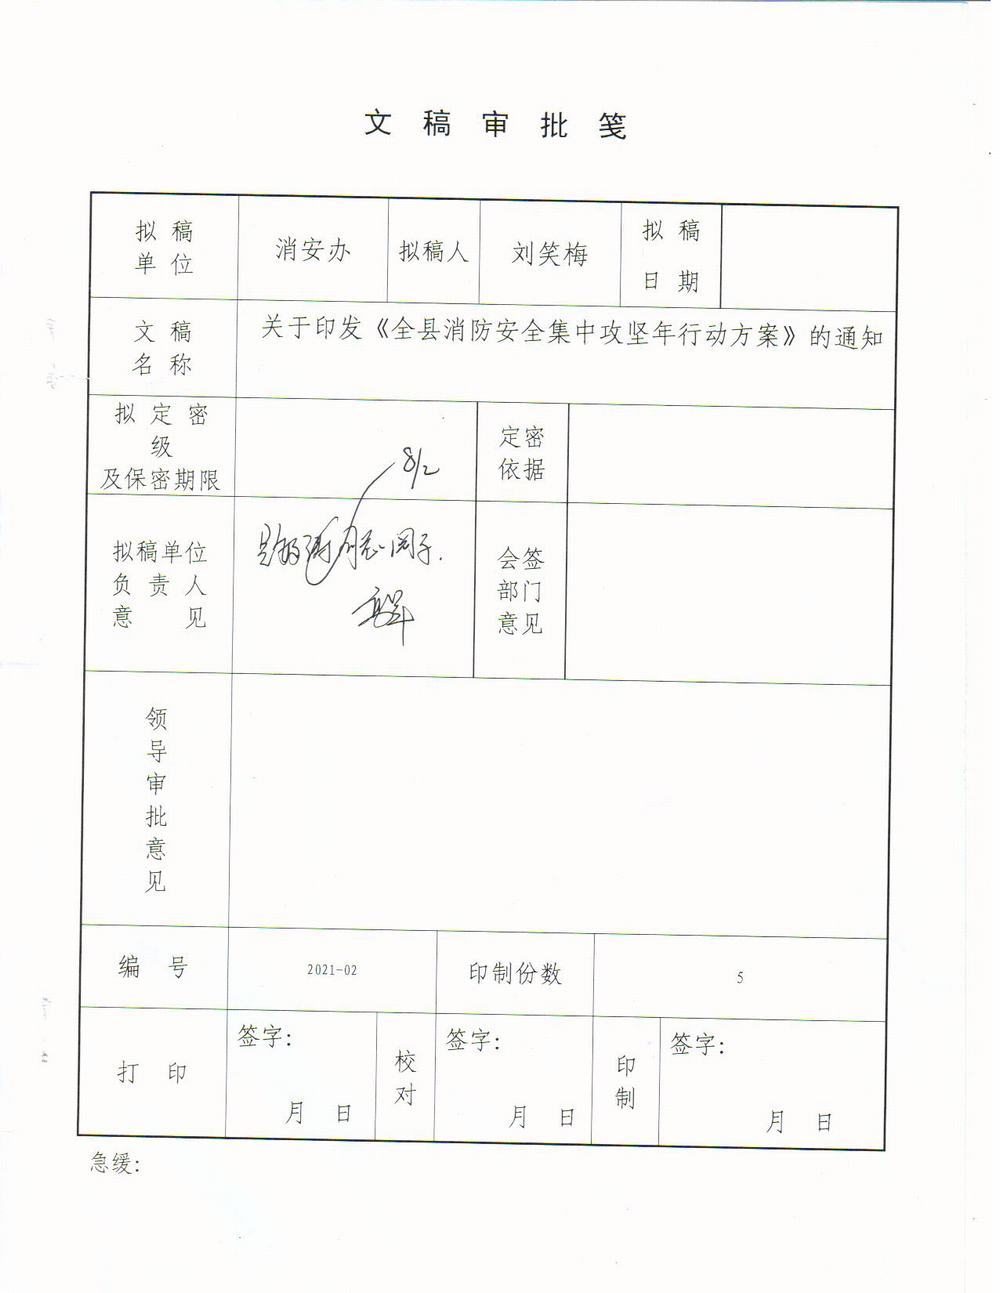 文稿审批笺
拟稿
单位
消安办
拟稿人
刘笑梅
拟稿
日期
文稿
名称
关于印发《全县消防安全集中攻坚年行动方案》的通知
拟定密
级
及保密期限
8/2
定密
依据
拟稿单位
负责人
意见
会签
部门
意见
领
导
审
批
意
见
编号
2021-02
印制份数
5
打印
签字：
月 日
校
对
签字：
月 日
印
制
签字：
月 日
急缓：